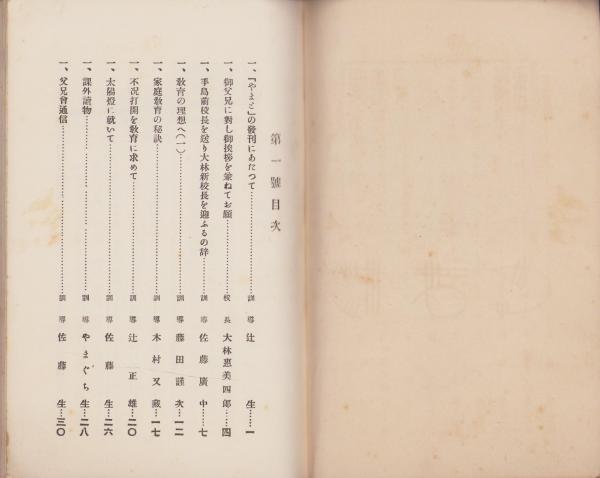 第一號目次
一、『やまと』の發刊にあたつて……………訓導 辻 生…一
一、御父兄に對し御挨拶を兼ねてお願……………校長 大林惠美四郎……四
一、手島前校長を送り大林新校長を迎ふるの辞……………訓導 佐藤廣中…七
一、敎育の理想へ(一)……………訓導 藤田謹次…一二
一、家庭敎育の秘訣……………訓導 木村又藏…一七
一、不況打開を敎育に求めて……………訓導 辻正雄…二〇
一、太陽燈に就いて……………訓導 佐藤生…二六
一、課外讀物……………訓導 やまぐち生…二八
一、父兄會通信……………訓導 佐藤生…三〇